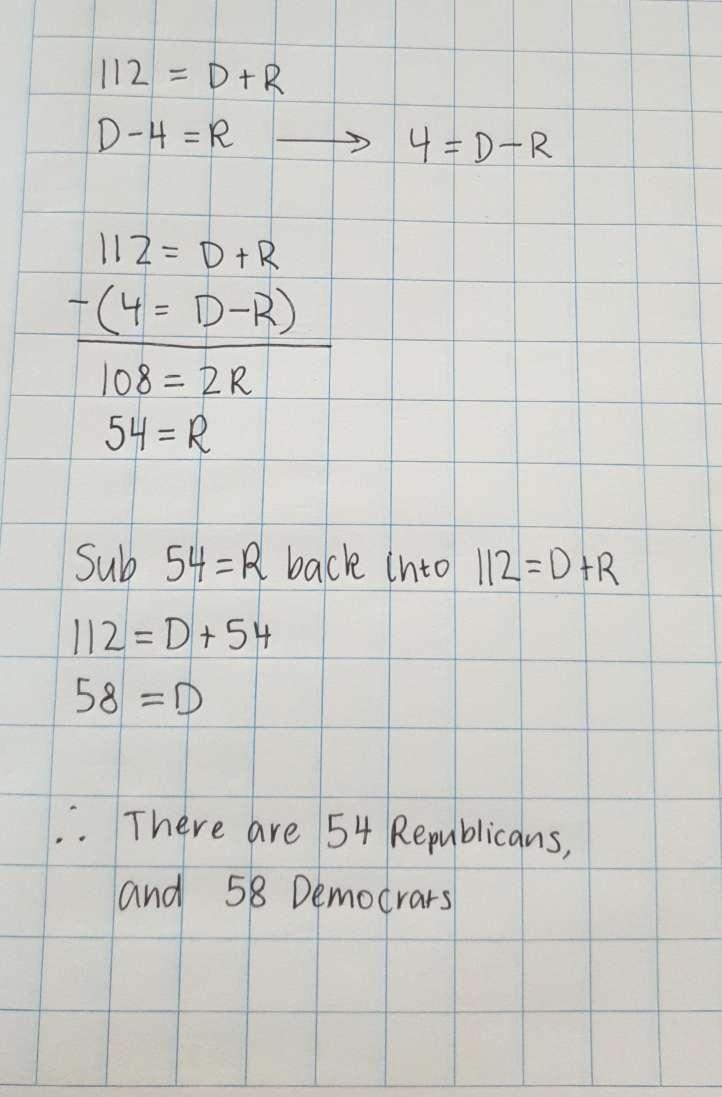 112 = D + R
D - 4 = R ⟶ 4 = D - R
112 = D + R
- (4 = D - R)
108 = 2R
54 = R
Sub 54 = R back into 112 = D + R
112 = D + 54
58 = D
∴ There are 54 Republicans,
and 58 Democrars